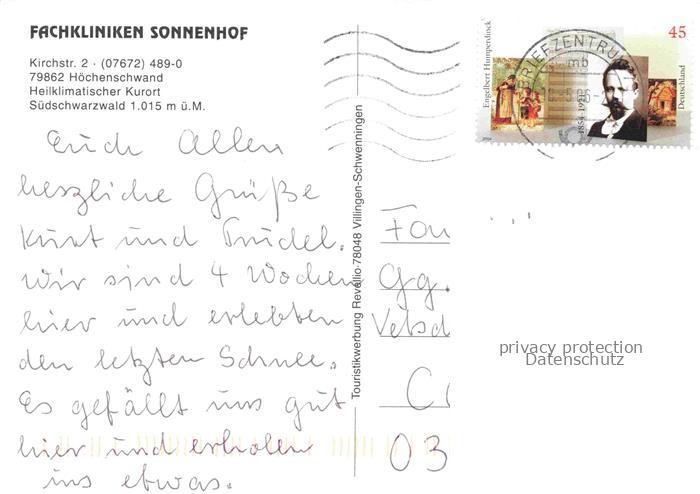 FACHKLINIKEN SONNENHOF
Kirchstr. 2 · (07672) 489-0
79862 Höchenschwand
Heilklimatischer Kurort
Südschwarzwald 1.015 m ü.M.
Euch Allen
herzliche Grüße
Kurt und Trudel.
Wir sind 4 Wochen
hier und erlebten
den letzten Schnee.
Es gefällt uns gut
hier und erholen
uns etwas.
Touristikwerbung Revellio-78048 Villingen-Schwenningen
Engelbert Humperdinck
1854-1921
45
Deutschland
BRIEFZENTRUM
mb
Fam
Gg.
03
privacy protection
Datenschutz